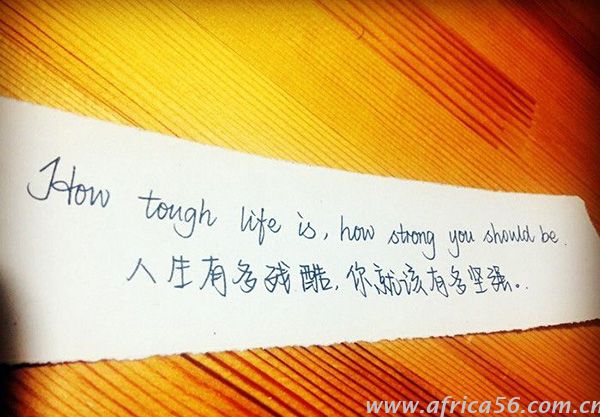 How tough life is, how strong you should be.
人生有多残酷,你就该有多坚强。
www.africa56.com.cn